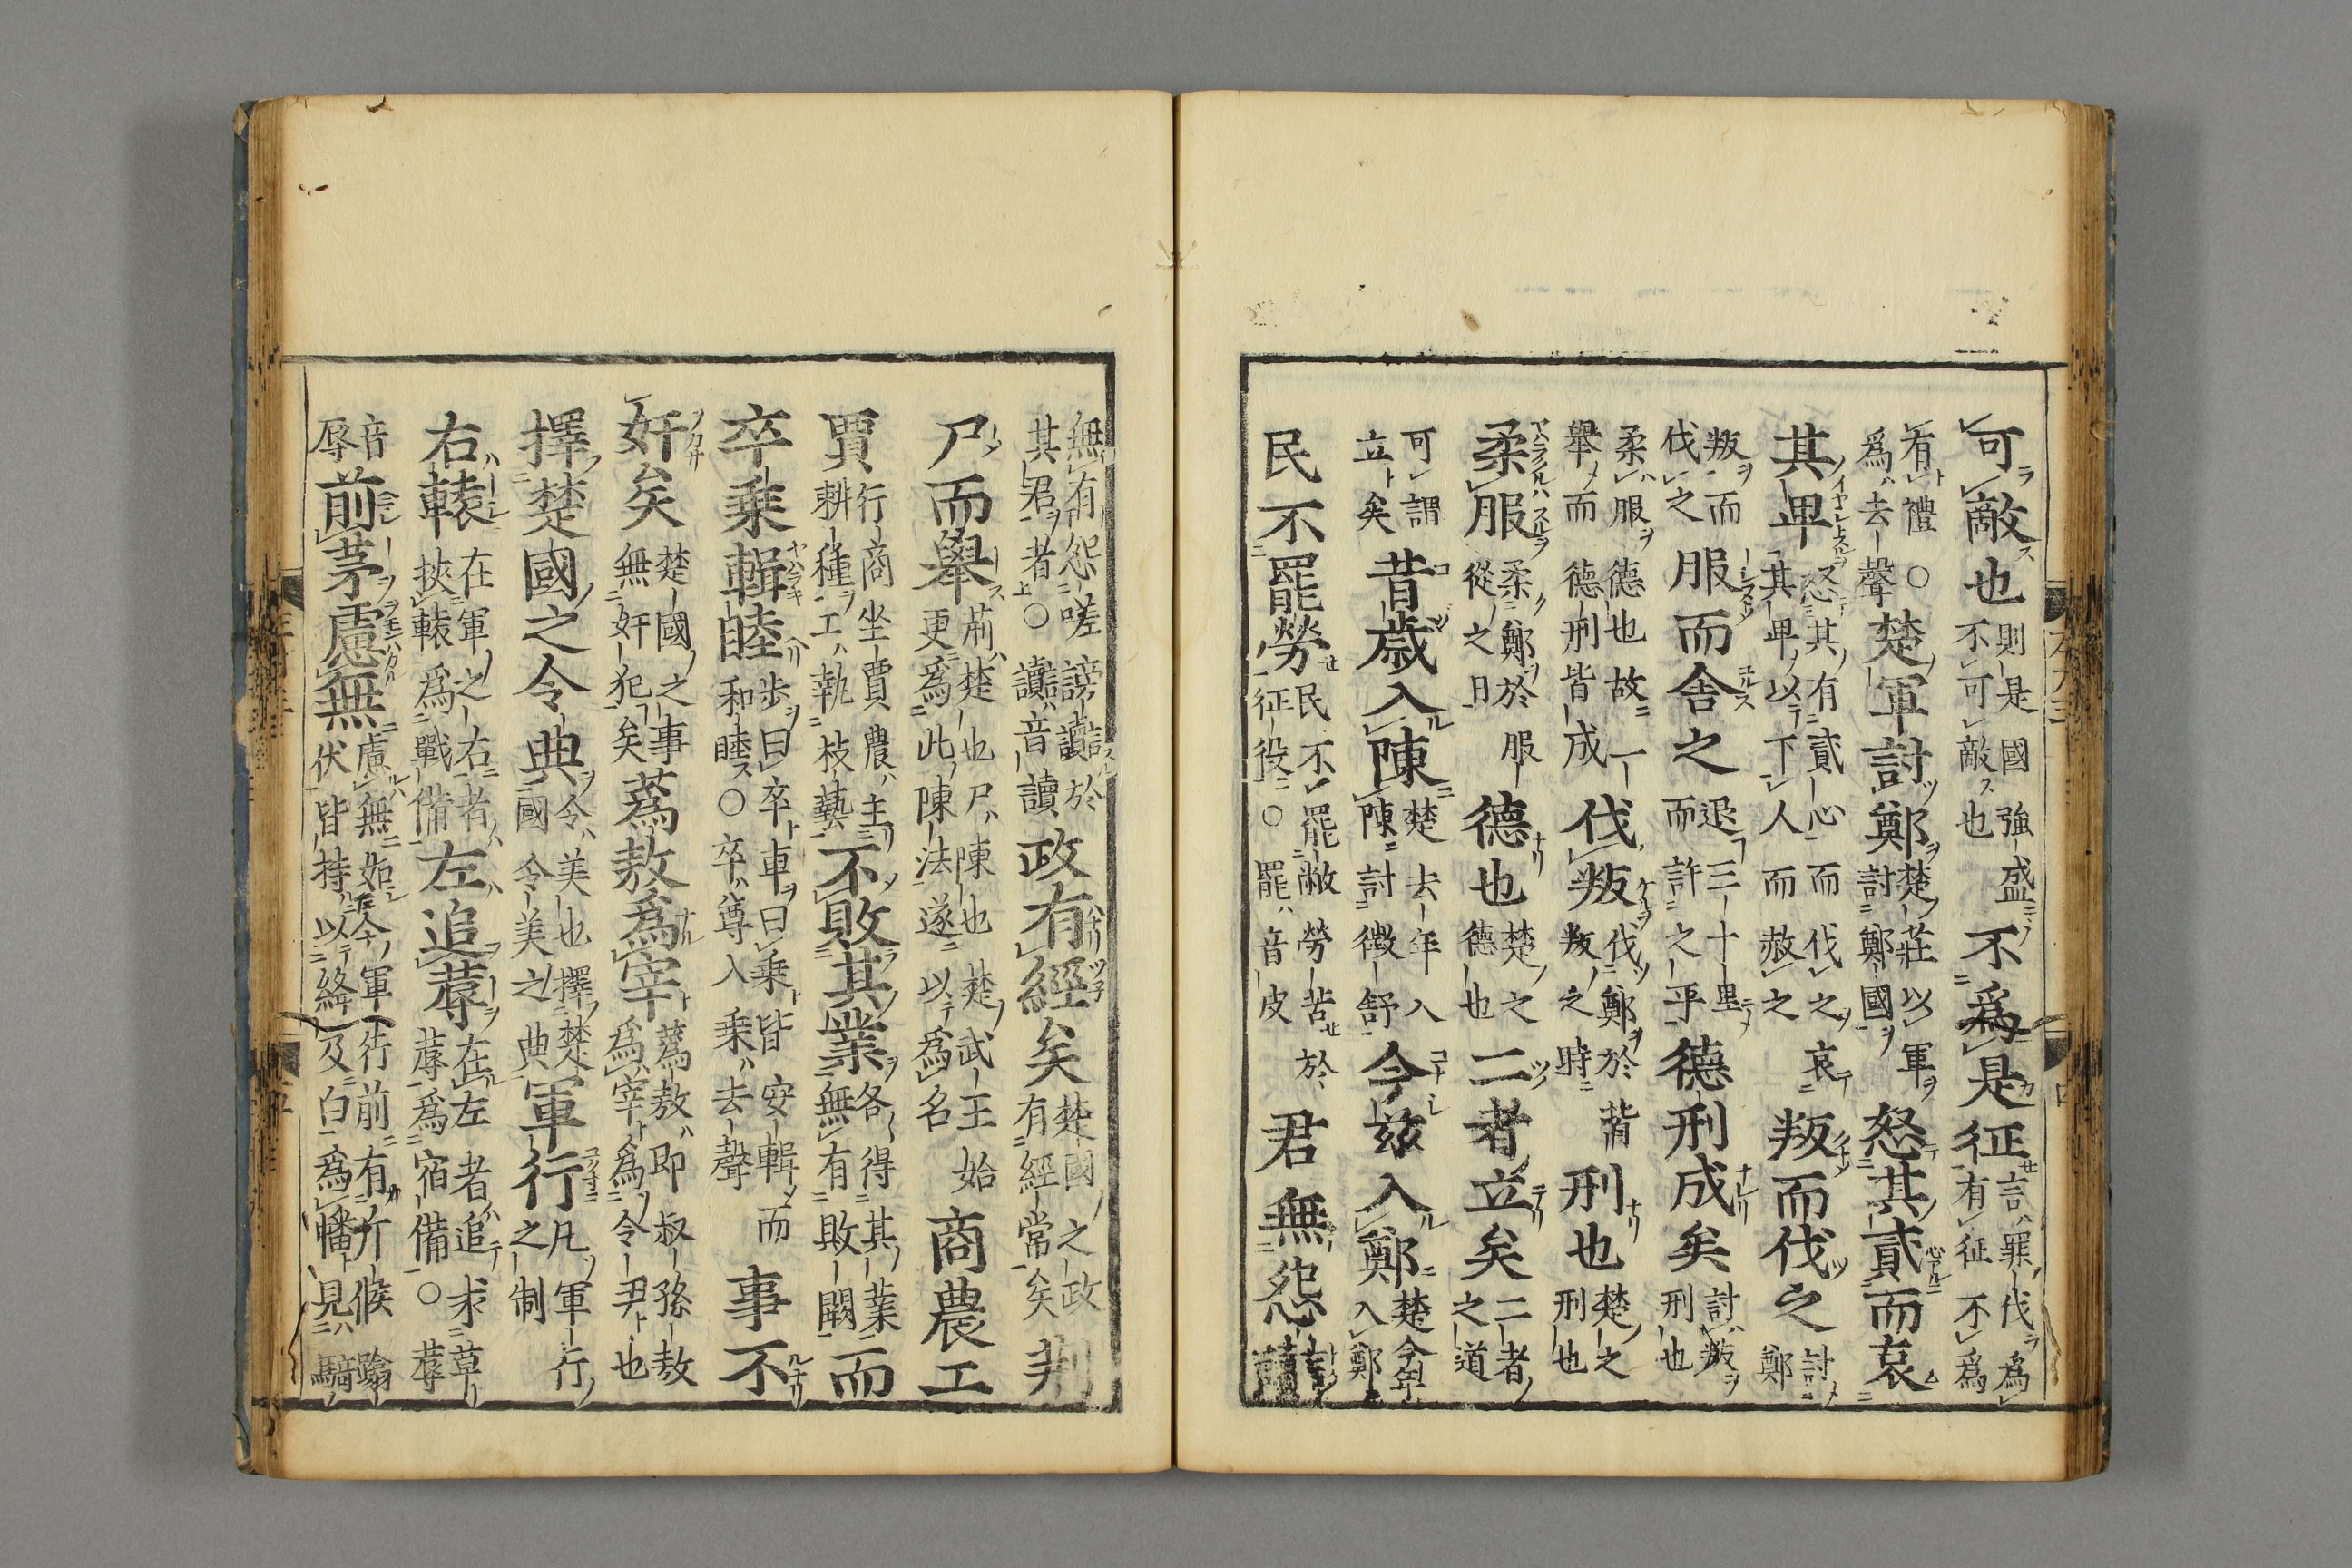 可敵也則是國強盛不可敵也不爲是征言罪伐爲有征不爲
有禮○爲去聲楚軍討鄭楚莊以軍討鄭國怒其貳而哀
其卑怒其有貳心而伐之哀其卑以下人而赦之叛而伐之討鄭
叛而伐之服而舍之退三十里而許之乎德刑成矣討叛刑也
柔服德也故舉而德刑皆成伐叛伐鄭於叛之時刑也楚之刑也
柔服柔鄭於服從之日德也楚之德也二者立矣二者之道
可謂立矣昔歲入陳楚去年入陳討徵舒今茲入鄭楚今年入鄭
民不罷勞民不罷敝勞苦於征役○罷音皮君無怨讟
無有怨嗟謗讟於其君者○讟音讀政有經矣楚國之政有經常矣荆
尸而舉荊楚也尸陳也楚武王始更爲此陳法遂以爲名商農工
賈行商坐賈農主耕種工執技藝不敗其業各得其業無有敗闕而
卒乗輯睦步曰卒車曰乗皆安輯而和睦○卒尊入乗去聲事不
奸矣楚國之事無奸犯矣蒍敖爲宰蒍敖即叔孫敖爲宰爲令尹也
擇楚國之令典令美也擇楚國令美之典軍行凡軍行之制
右轅在軍之右者挾轅爲戰備左追蓐在左者追求草蓐爲宿備○蓐
音辱前茅慮無慮無如今軍行前有斥候蹹伏皆持以絳及白爲幡見騎